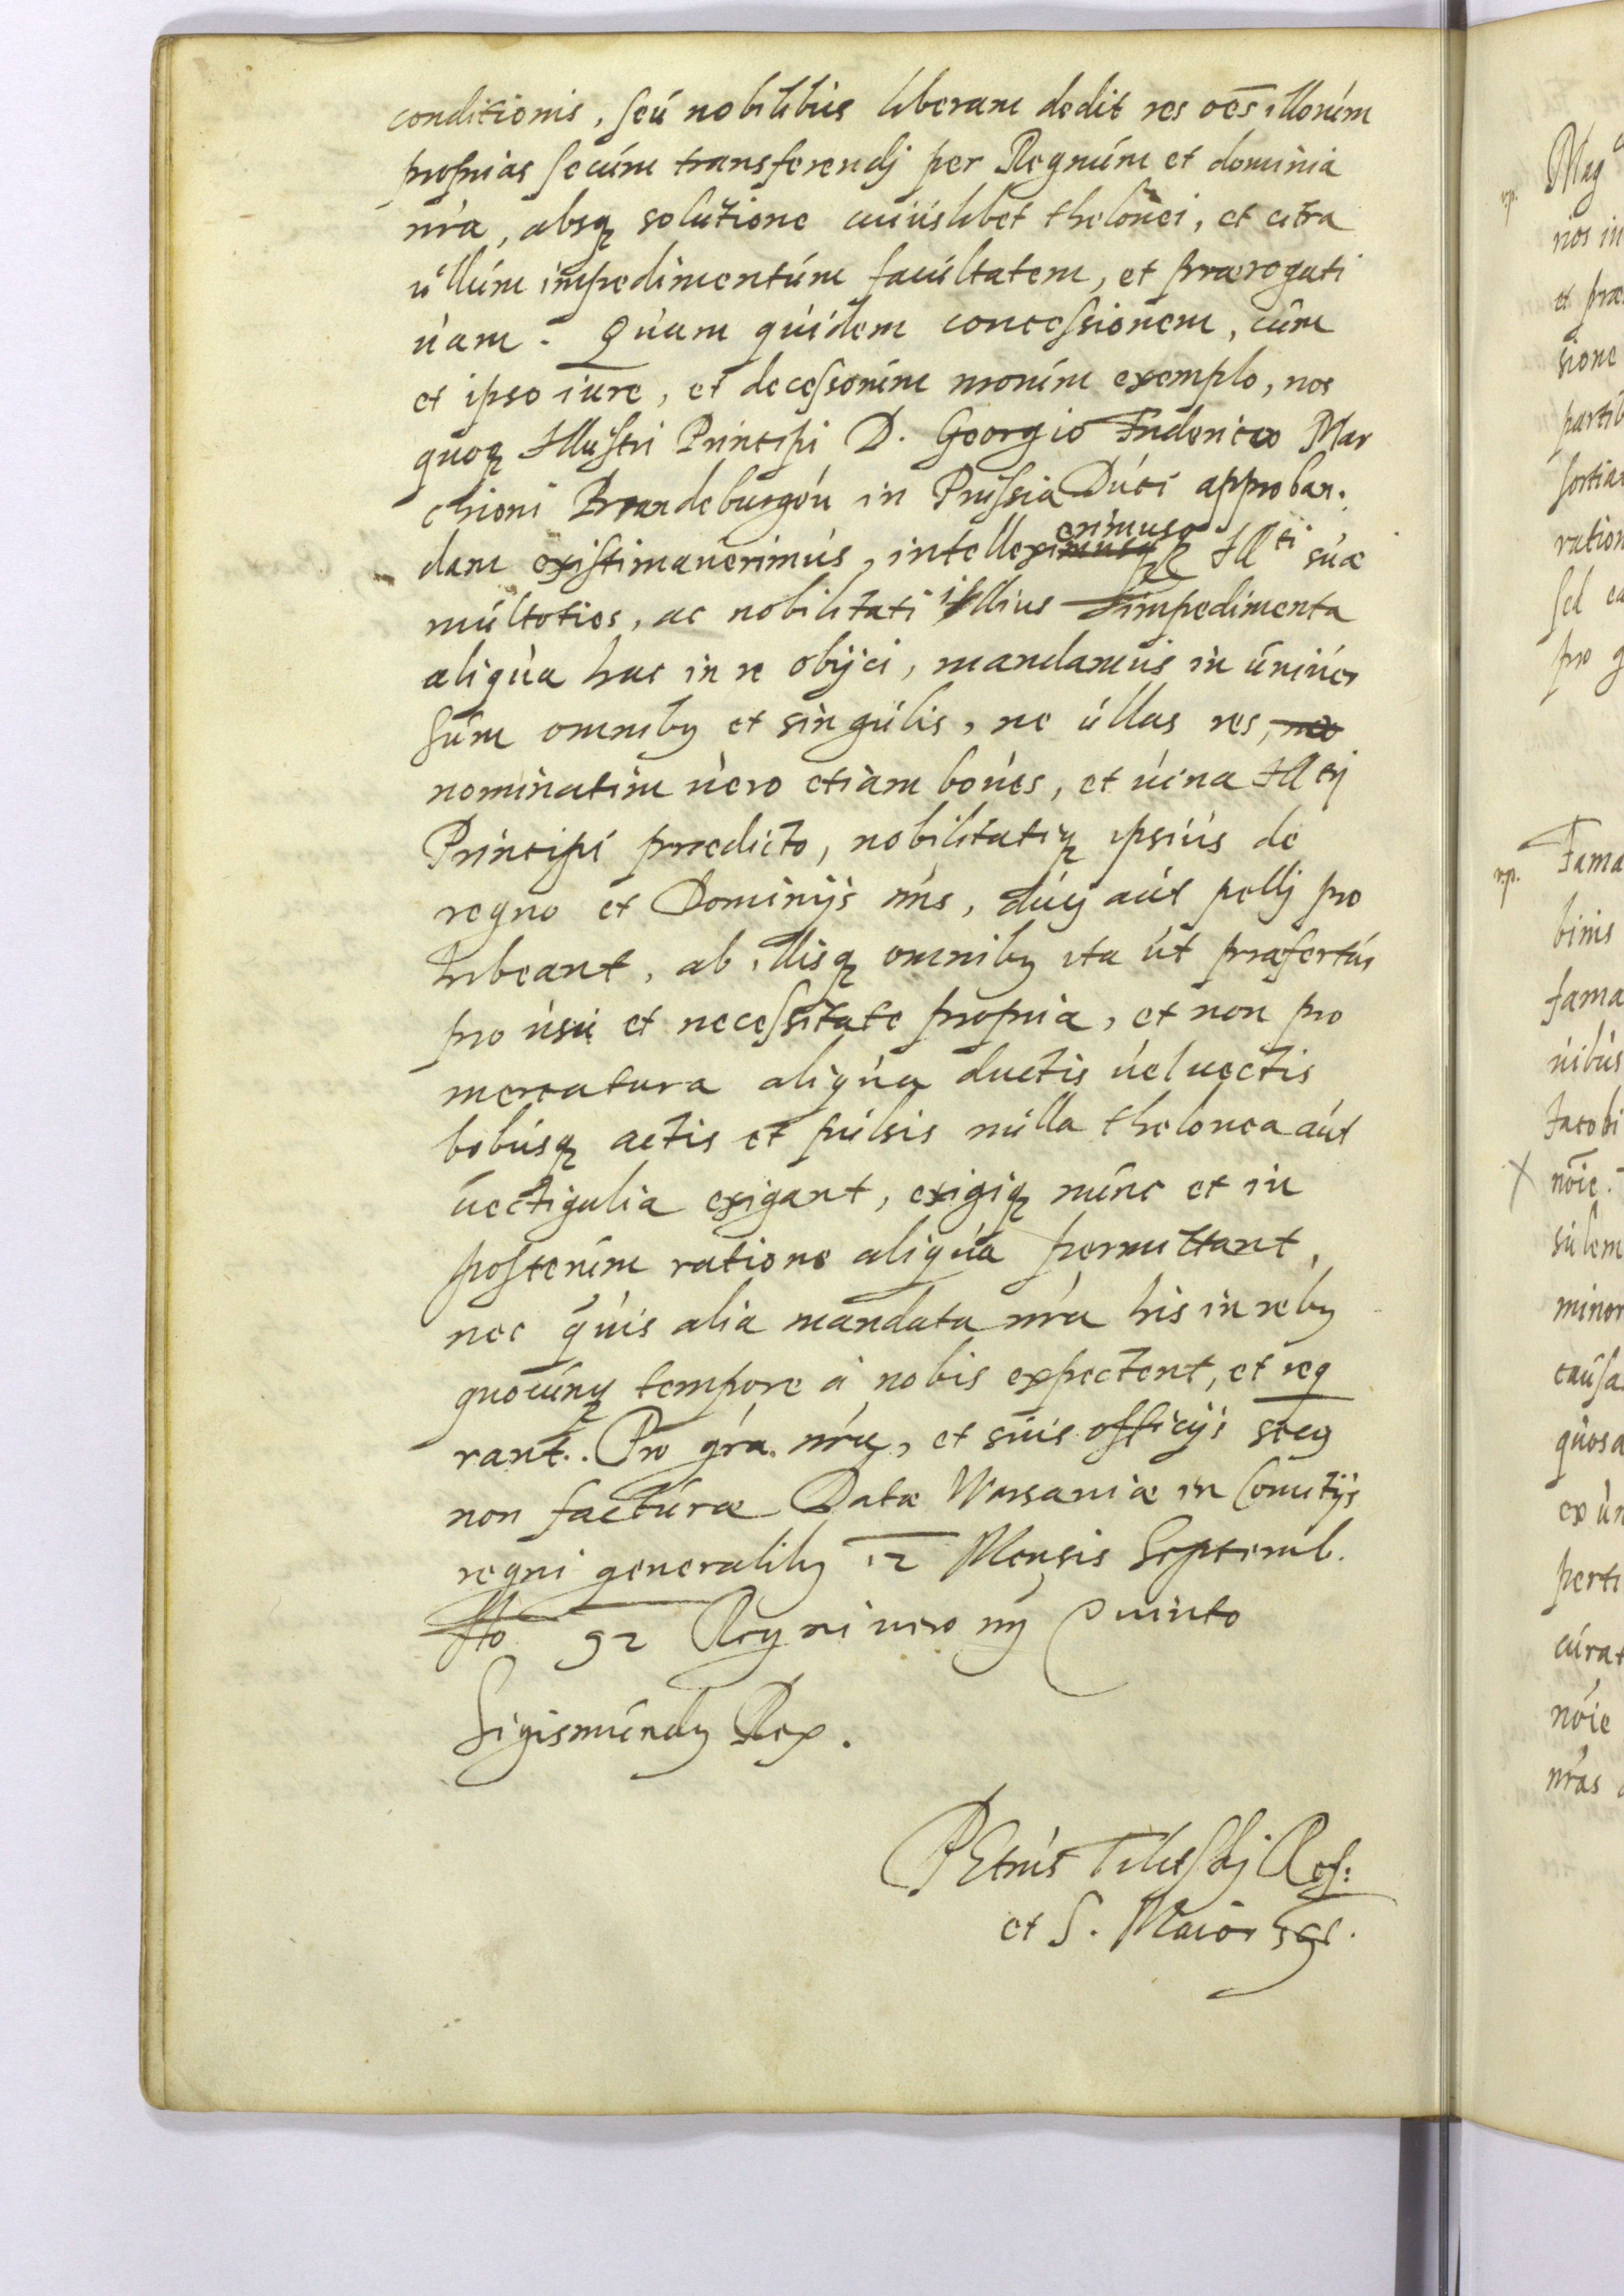 conditionis, seú nobilibús liberam dedit res oēs illorúm
proprias secúm transferendj per Regnúm et dominia
nr̃a, absq solutione cuiúslibet thelonei, et citra
úllúm impedimentúm facúltatem, et prærogati
úam. Qúam qúidem concessionem, cúm
et ipso iure, et decessorúm nrorúm exemplo, nos
quoq Illústri Principi D. Georgio Friderico Mar
chioni Brandeburgeń in Prússia Dúci approban
dam existimaverimús, intellexerimusq Illti súæ
múltoties, ac nobilitati illius impedimenta
aliqúa hac in re obijci, mandamús in úniúer
súm omnibg et singúlis, ne úllas res,
nominatim úero etiam boúes, et úina Illrj
Principi prædicto, nobilitatiq ipsiús de
regno et Dominijs nr̃is, dúcj aút pellj pro
hibeant, ab illisq omnibg ita út præfertúr
pro úsú et necessitate propria, et non pro
mercatura aliqúa ductis úel uectis
bobúsq actis et púlsis núlla thelonea aút
uectigalia exigant, exigiq núnc et in
posterúm ratione aliqúa permittant,
nec qúis alia mandata nr̃a his in rebg
quocúnq tempore à nobis expectent, et req
rant. Pro gr̃a nr̃a, et súis officijs secg
non factúræ Datæ Warsaviæ in Comitijs
regni generalibg 12 Mensis Septemb.
Ao 92 Regni vero nr̃j Quinto
Sigismúndg Rex.
PEtrús Tilitskj Ref:
et S. Maior Scr.
Mag
nos in
et præ
sione
partib
sortian
ration
sel ea
pro g
Fama
binis
fama
nibús
Jacobi
nōie
súlem
minor
caúsa
qúosa
ex ún
perti
cúrat
nōie
nr̃as